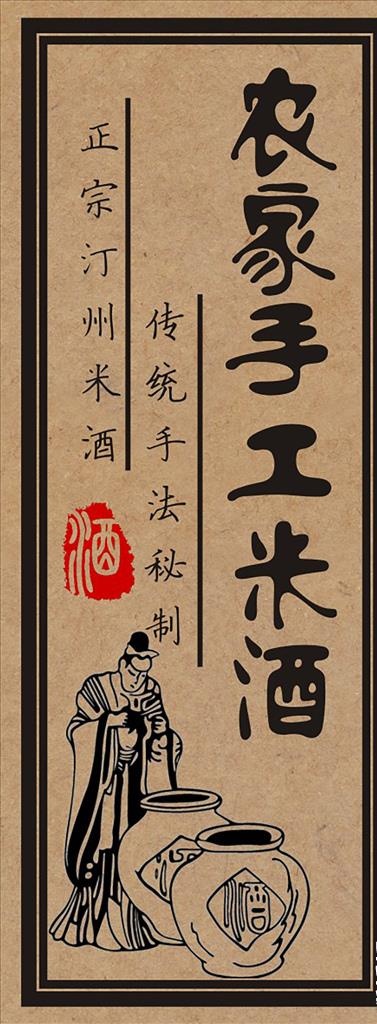 农家手工米酒
传统手法秘制
正宗汀州米酒
酒
酒